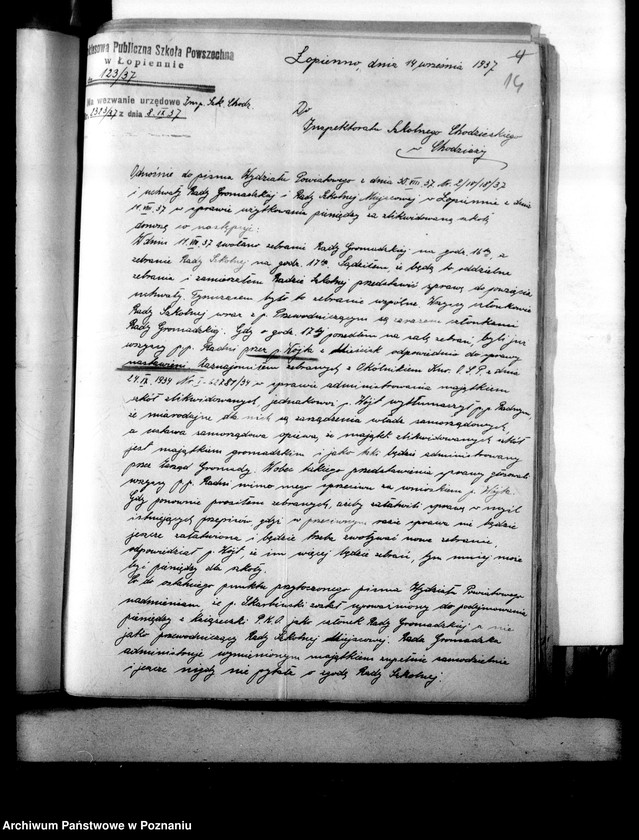 Publiczna Szkoła Powszechna
w Łopiennie
123/37
Na wezwanie urzędowe Insp. Szk. Chodz.
z dnia 8.IX.37
Łopienno, dnia 14 września 1937
4
14
Do
Inspektoratu Szkolnego Chodzieskiego
w Chodzieży
Odnośnie do pisma Wydziału Powiatowego z dnia 30.VIII.37 Nr. 2/10/18/37
i uchwały Rady Gromadzkiej i Rady Szkolnej Miejscowej w Łopiennie z dnia
11.VIII.37 w sprawie użytkowania pieniędzy za zlikwidowaną szkołę
donoszę co następuje:
W dniu 11.VIII.37 zwołano zebranie Rady Gromadzkiej na godz. 16tą, a
zebranie Rady Szkolnej na godz. 17tą. Sądziłem, że będą to oddzielne
zebrania i zamierzałem Radzie Szkolnej przedstawić sprawę do powzięcia
uchwały. Tymczasem było to zebranie wspólne. Wszyscy członkowie
Rady Szkolnej wraz z p. Przewodniczącym są zarazem członkami
Rady Gromadzkiej. Gdy o godz. 17tej poszedłem na salę zebrań, byli już
wszyscy p.p. Radni przez p. Wójta z odpowiednio do sprawy
nastawieni. Zaznajomiłem zebranych z Okólnikiem Kur. O.S.P. z dnia
24.IX.1934 Nr. I-52781/34 w sprawie administrowania majątkiem
szkół zlikwidowanych, jednakowoż p. Wójt wytłumaczył p.p. Radnym,
że miarodajne dla nich są zarządzenia władz samorządowych,
a ustawa samorządowa opiewa, że majątek zlikwidowanych szkół
jest majątkiem gromadzkim i jako taki będzie administrowany
przez Zarząd Gromady. Wobec takiego przedstawienia sprawy głosowali
wszyscy p.p. Radni mimo mego sprzeciwu za wnioskiem p. Wójta.
Gdy ponownie prosiłem zebranych, ażeby załatwili sprawę w myśl
istniejących przepisów gdyż w przeciwnym razie sprawa nie będzie
jeszcze załatwiona i będzie trzeba zwoływać nowe zebranie,
odpowiedział p. Wójt, że im więcej będzie zebrań, tym mniej może
być pieniędzy dla szkoły.
Co do ostatniego punktu przytoczonego pisma Wydziału Powiatowego
nadmieniam, że p. Skarbiński został upoważniony do podejmowania
pieniędzy z książeczki P.K.O. jako członek Rady Gromadzkiej a nie
jako przewodniczący Rady Szkolnej Miejscowej. Rada Gromadzka
administruje wymienionym majątkiem zupełnie samodzielnie
i jeszcze nigdy nie pytała o zgodę Rady Szkolnej.
Archiwum Państwowe w Poznaniu